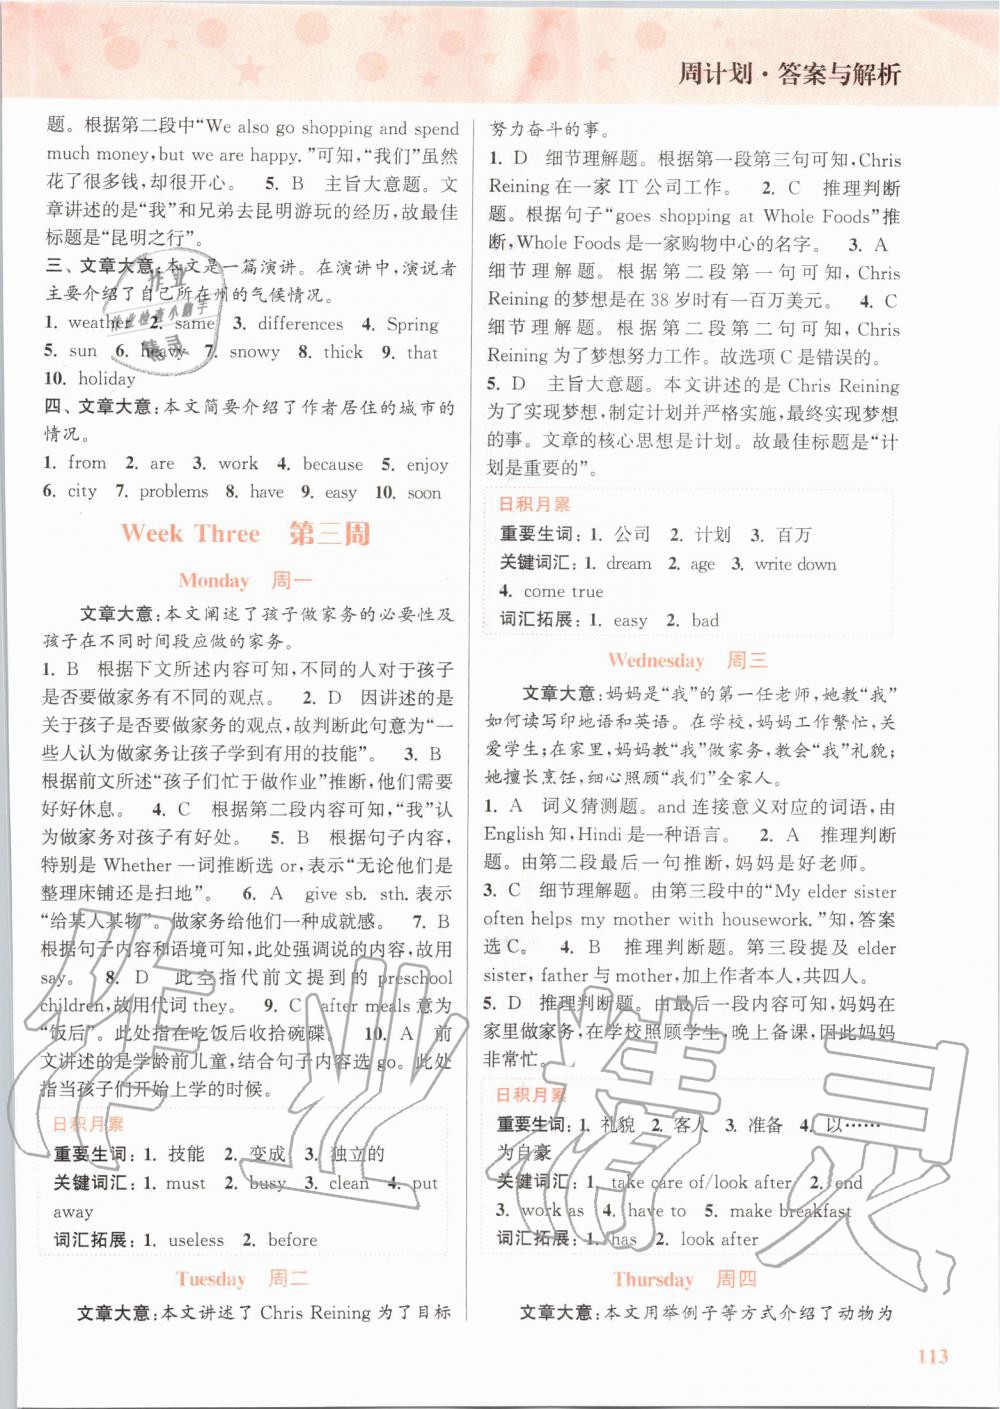 周计划·答案与解析
题。根据第二段中“We also go shopping and spend
much money, but we are happy. ”可知，“我们”虽然
花了很多钱，却很开心。 5. B 主旨大意题。文
章讲述的是“我”和兄弟去昆明游玩的经历，故最佳
标题是“昆明之行”。
三、文章大意：本文是一篇演讲。在演讲中，演说者
主要介绍了自己所在州的气候情况。
1. weather 2. same 3. differences 4. Spring
5. sun 6. heavy 7. snowy 8. thick 9. that
10. holiday
四、文章大意：本文简要介绍了作者居住的城市的
情况。
1. from 2. are 3. work 4. because 5. enjoy
6. city 7. problems 8. have 9. easy 10. soon
Week Three 第三周
Monday 周一
文章大意：本文阐述了孩子做家务的必要性及
孩子在不同时间段应做的家务。
1. B 根据下文所述内容可知，不同的人对于孩子
是否要做家务有不同的观点。 2. D 因讲述的是
关于孩子是否要做家务的观点，故判断此句意为“一
些人认为做家务让孩子学到有用的技能”。 3. B
根据前文所述“孩子们忙于做作业”推断，他们需要
好好休息。 4. C 根据第二段内容可知，“我”认
为做家务对孩子有好处。 5. B 根据句子内容，
特别是 Whether 一词推断选 or，表示“无论他们是
整理床铺还是扫地”。 6. A give sb. sth. 表示
“给某人某物”。做家务给他们一种成就感。 7. B
根据句子内容和语境可知，此处强调说的内容，故用
say。 8. D 此空指代前文提到的 preschool
children，故用代词 they。 9. C after meals 意为
“饭后”。此处指在吃饭后收拾碗碟。 10. A 前
文讲述的是学龄前儿童，结合句子内容选 go。此处
指当孩子们开始上学的时候。
日积月累
重要生词：1. 技能 2. 变成 3. 独立的
关键词汇：1. must 2. busy 3. clean 4. put
away
词汇拓展：1. useless 2. before
Tuesday 周二
文章大意：本文讲述了 Chris Reining 为了目标
努力奋斗的事。
1. D 细节理解题。根据第一段第三句可知，Chris
Reining 在一家 IT 公司工作。 2. C 推理判断
题。根据句子“goes shopping at Whole Foods”推
断，Whole Foods 是一家购物中心的名字。 3. A
细节理解题。根据第二段第一句可知，Chris
Reining 的梦想是在 38 岁时有一百万美元。 4. C
细节理解题。根据第二段第二句可知，Chris
Reining 为了梦想努力工作。故选项 C 是错误的。
5. D 主旨大意题。本文讲述的是 Chris Reining
为了实现梦想，制定计划并严格实施，最终实现梦想
的事。文章的核心思想是计划。故最佳标题是“计
划是重要的”。
日积月累
重要生词：1. 公司 2. 计划 3. 百万
关键词汇：1. dream 2. age 3. write down
4. come true
词汇拓展：1. easy 2. bad
Wednesday 周三
文章大意：妈妈是“我”的第一任老师，她教“我”
如何读写印地语和英语。在学校，妈妈工作繁忙，关
爱学生；在家里，妈妈教“我”做家务，教会“我”礼貌；
她擅长烹饪，细心照顾“我们”全家人。
1. A 词义猜测题。and 连接意义对应的词语，由
English 知，Hindi 是一种语言。 2. A 推理判断
题。由第二段最后一句推断，妈妈是好老师。
3. C 细节理解题。由第三段中的“My elder sister
often helps my mother with housework. ”知，答案
选 C。 4. B 推理判断题。第三段提及 elder
sister，father 与 mother，加上作者本人，共四人。
5. D 推理判断题。由最后一段内容可知，妈妈在
家里做家务，在学校照顾学生，晚上备课，因此妈妈
非常忙。
日积月累
重要生词：1. 礼貌 2. 客人 3. 准备 4. 以……
为自豪
关键词汇：1. take care of/look after 2. end
3. work as 4. have to 5. make breakfast
词汇拓展：1. has 2. look after
Thursday 周四
文章大意：本文用举例子等方式介绍了动物为
113
作业
作业检查小助手
精灵
作业精灵